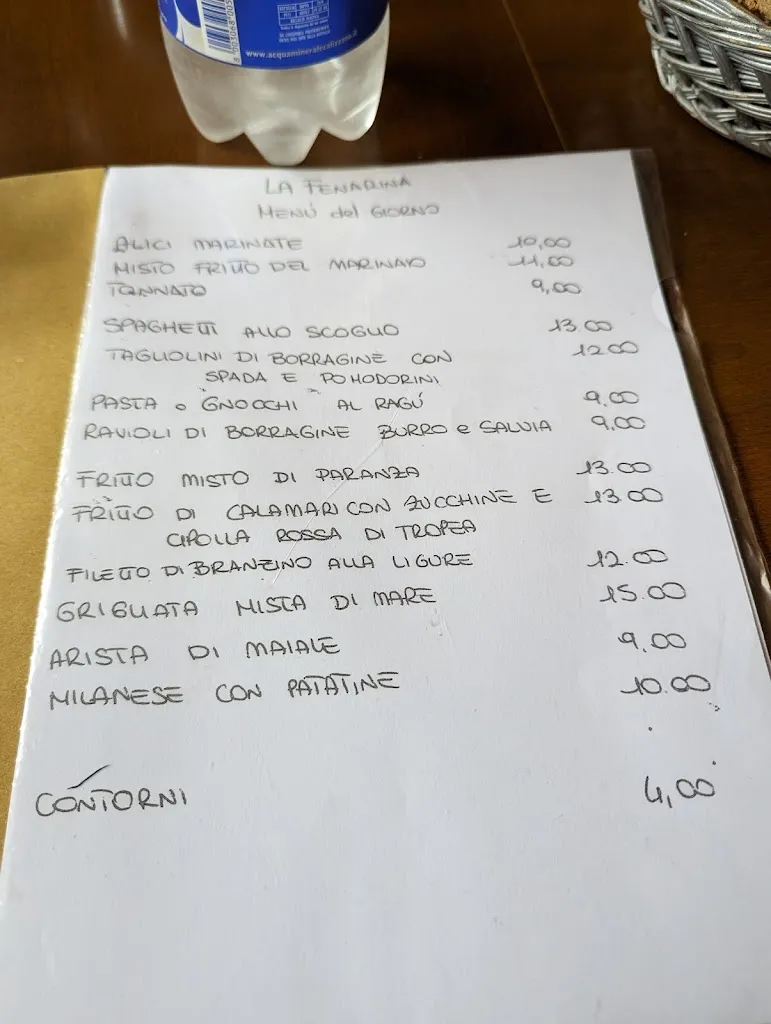 www.acquamineralecalizzano.it
LA FENARINA
MENÚ del GIORNO
ALICI MARINATE 10,00
MISTO FRITTO DEL MARINAIO 11,00
TONNATO 9,00
SPAGHETTI ALLO SCOGLIO 13.00
TAGLIOLINI DI BORRAGINE CON 12.00
SPADA E POMODORINI
PASTA o GNOCCHI AL RAGÚ 9.00
RAVIOLI DI BORRAGINE BURRO e SALVIA 9,00
FRITTO MISTO DI PARANZA 13.00
FRITTO DI CALAMARI CON ZUCCHINE E 13.00
CIPOLLA ROSSA DI TROPEA
FILETTO DI BRANZINO ALLA LIGURE 12.00
GRIGLIATA MISTA DI MARE 15.00
ARISTA DI MAIALE 9,00
MILANESE CON PATATINE 10.00
CONTORNI 4,00